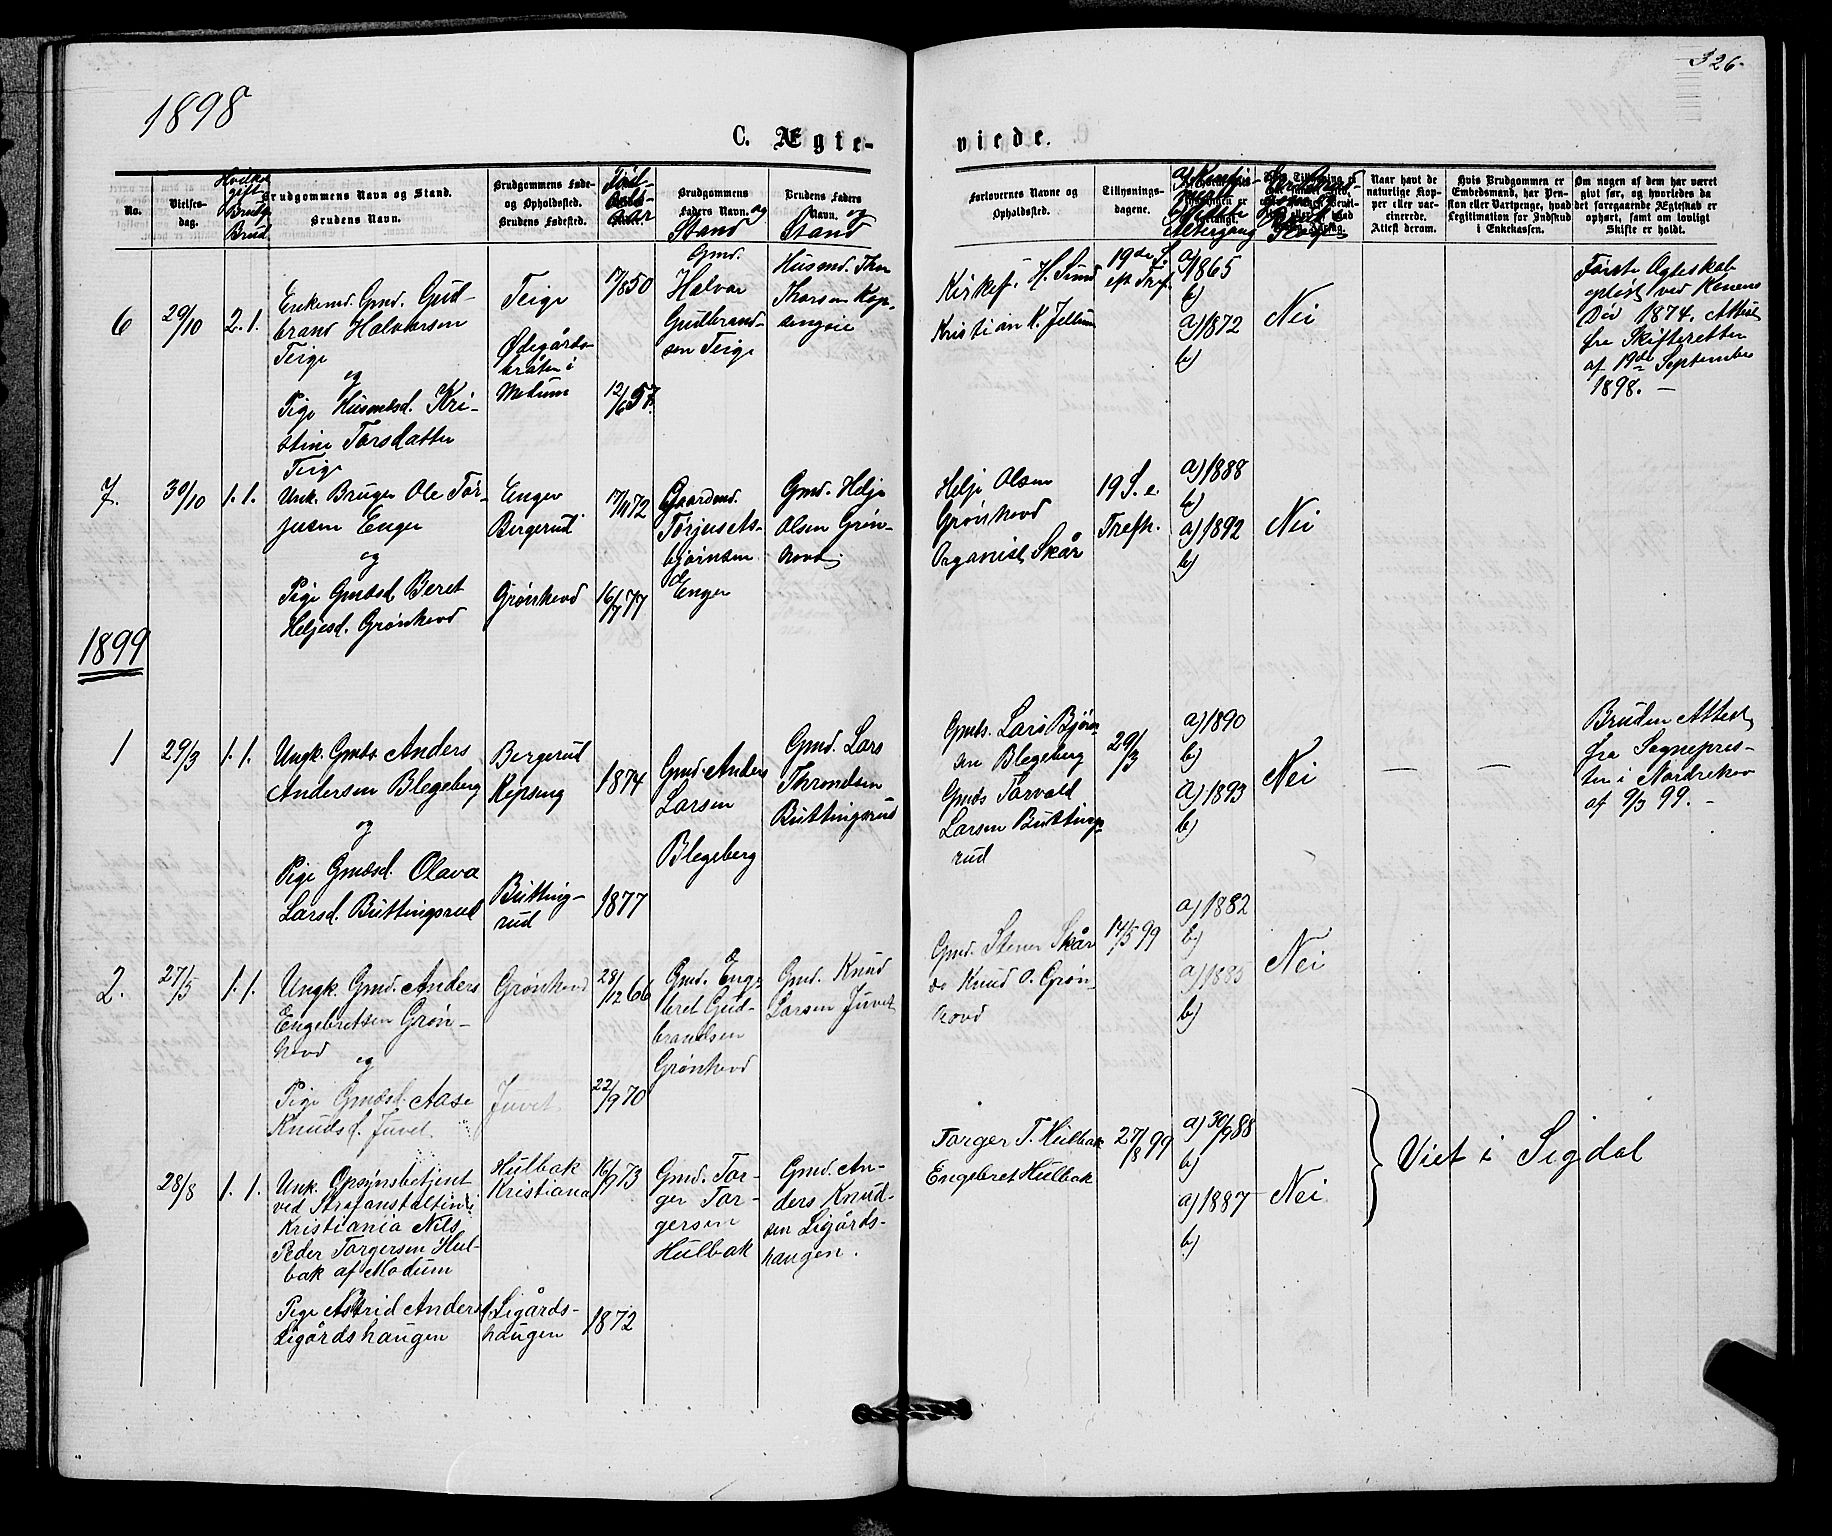 1898
326.
C. Ægte-
viede.
No.
Vielses-
dag.
Hvilket
gift.
Brudg.
Brud
Brudgommens Navn og Stand.
Brudens Navn.
Brudgommens Føde-
og Opholdssted.
Brudens Fødested.
Brudgommens
Faders Navn. og
Stand
Brudens Faders
Navn. og
Stand
Forlovernes Navne og
Opholdssted.
Tillysnings-
dagene.
Altergang
Naar havt de
naturlige Kop-
per eller var-
cinerede.
Attest derom.
Hvis Brudgommen er
Embedsmand, har Pen-
sion eller Vartpenge, hvad
Legitimation for Indskud
i Enkekassen.
Om nogen af dem har været
givt før, og hvorledes da
det foregaaende Ægteskab er
ophørt, samt om lovligt
Skifte er holdt.
6
29/10
2. 1.
Enkemd. Gmd. Gud-
brand Halvorsen
Teige
og
Pige Husmdsd. Kri-
stine Torsdatter
Teige
Teige
Ødegårds-
bråten i
Modum
17/8 50
12/6 57.
Gmd.
Halvor
Gudbrand-
sen Teige
Husmd. Thor
Thorsen Kop-
sengeie
Kirkes. H. Sund
Kristian K. Jellum
19de S.
eft Tref.
a) 1865
b)
a) 1872
b)
Nei
Første Ægteskab
opløst ved Konens
Død 1874. Attest
fra Skifteretten
af 19de September
1898. —
7.
30/10
1. 1.
Unk. Bruger Ole Tor-
jusen Enger
og
Pige Gmdsd. Beret
Heljesd. Grønhovd
Enger
Bergerud
Grønhovd
17/4 72
16/7 77
Gaardmd.
Torjus As-
bjørnsen
Enger
Gmd. Helje
Olsen Grøn-
hovd
Helje Olsen
Grønhovd
Organist Skår
19 S. e.
Trefh.
a) 1888
b)
a) 1892
b)
Nei
1899
1
29/3
1. 1.
Ungk. Gmds. Anders
Andersen Blegeberg
og
Pige Gmdsd. Olava
Larsd. Buttingsrud
Bergerud
Kopseng
Butting-
rud
1874
1877
Gmd. Anders
Larsen
Blegeberg
Gmd. Lars
Throndsen
Buttingsrud
Gmds. Lars Bjørn-
Blegeberg
Gmds Torvald
Larsen Buttings-
rud
29/3
a) 1890
b)
a) 1893
b)
Nei
—
—
Bruden Attest
fra Sognepres-
ten i Nordrehov
af 9/3 99. —
2.
27/5
1. 1.
Ungk. Gmd. Anders
Engebretsen Grøn-
hovd
og
Pige Gmdsd. Aase
Knudsd. Juvet
Grønhovd
Juvet
28/12 66
22/9 70
Gmd. Enge-
bret Gud-
brandsen
Grønhovd
Gmd. Knud
Larsen Juvet
Gmd. Stener Skår
Knud O. Grøn-
hovd
14/5 99
a) 1882
b)
a) 1885
b)
Nei
28/8
1. 1.
Unk. Opsynsbetjent
ved Strafanstalten i
Kristiania Nils
Peder Torgersen Hul-
bak af Modum
Pige Astrid Andersd.
Ligårdshaugen
Hulbak
Kristiana
Ligårds-
haugen
16/9 73
1872
Gmd. Tor-
ger Tor-
gersen
Hulbak
Gmd. An-
ders Knud-
sen Ligårds-
haugen.
Torger T. Hulbak
Engebret Hulbak
27/8 99
a) 30/9 88
b)
a) 1887
b)
Nei
Viet i Sigdal